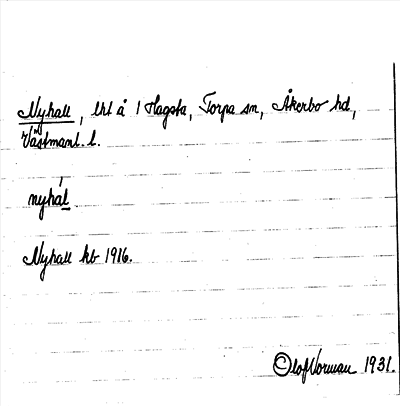 Nyhall, lht å 1 Hagsta, Torpa sn, Åkerbo hd,
Västmanl. l.
nyhál
Nyhall kb 1916.
Olof Norman 1931.